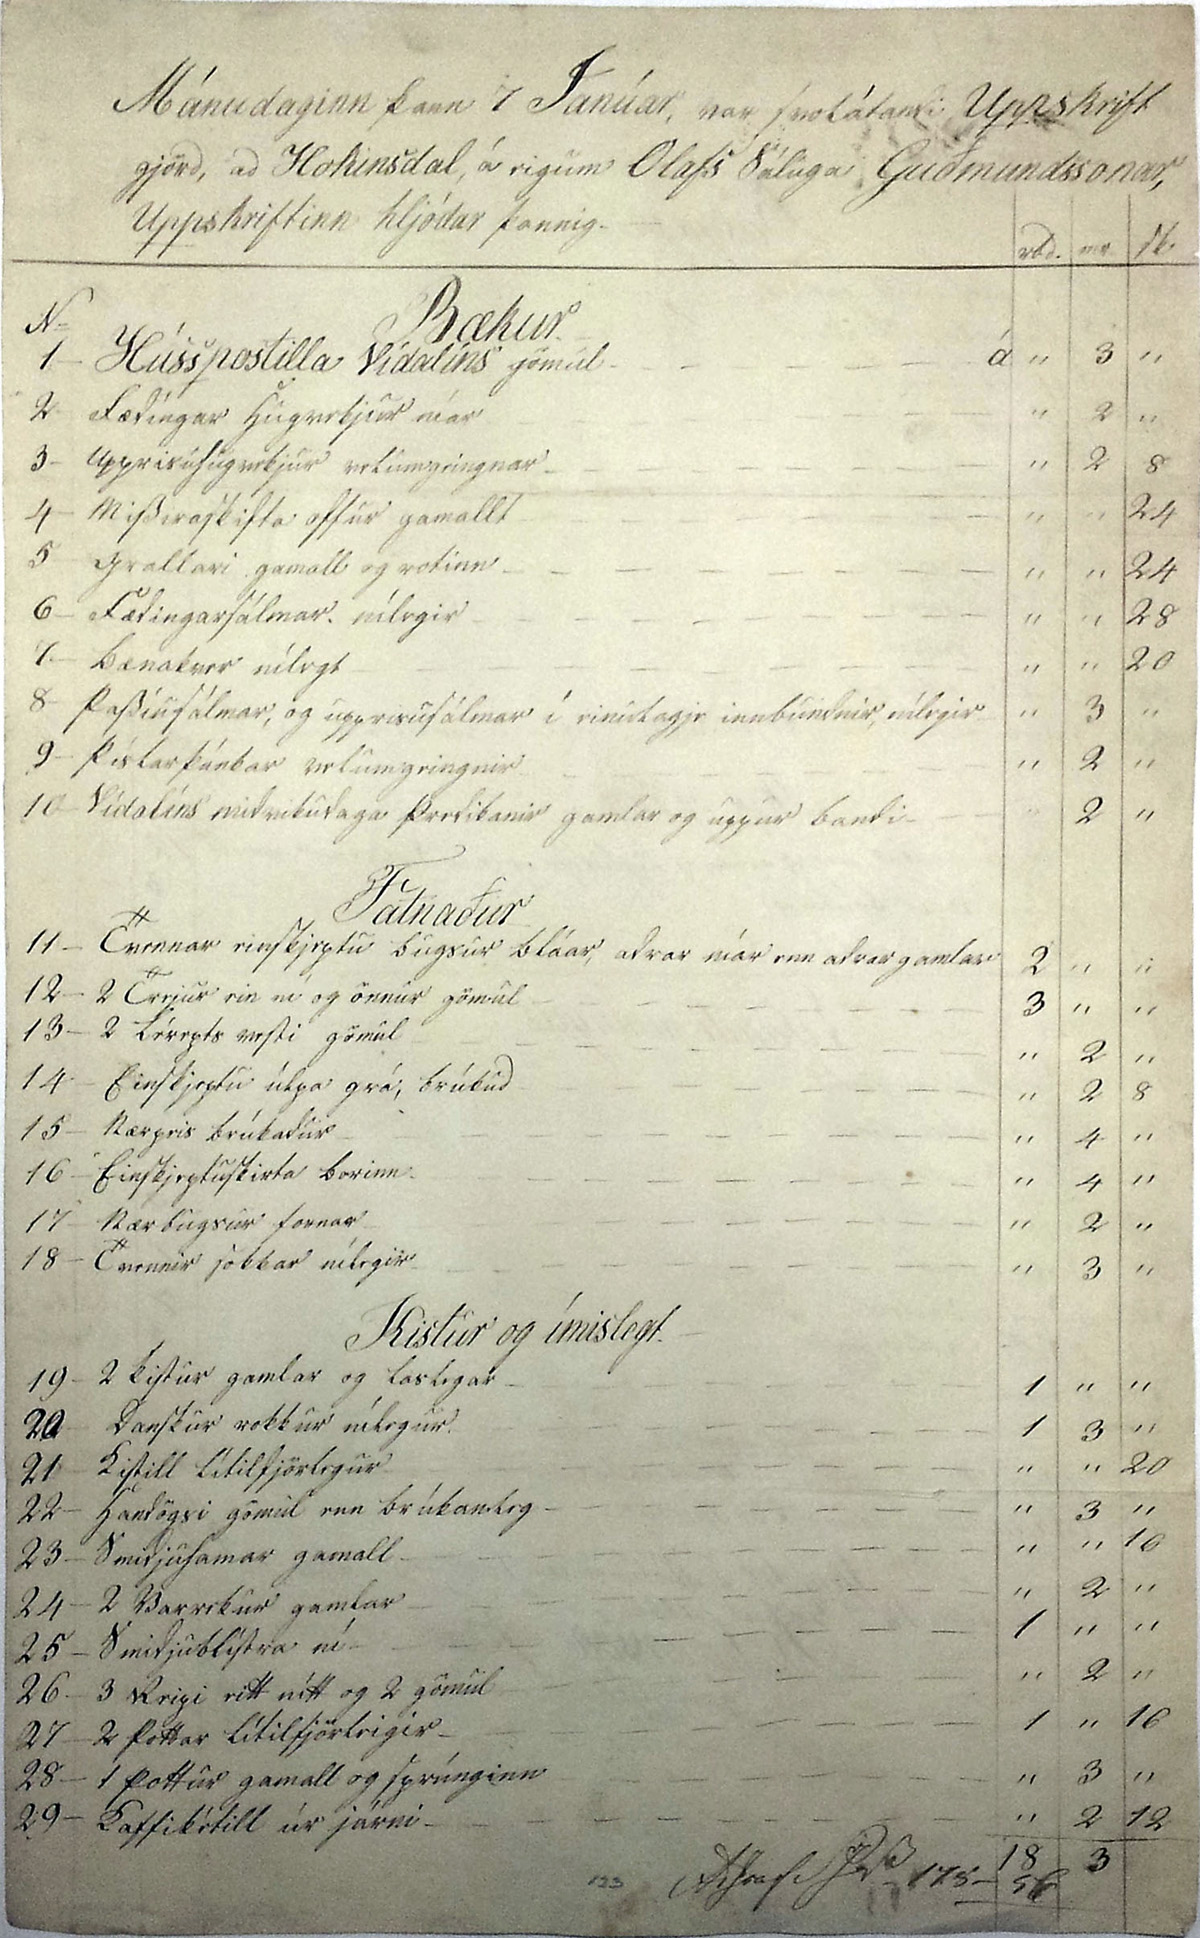 Mánudaginn þann 7 Janúar, var svolátandi Uppskrift
gjörd, ad Hokinsdal, á eigum Olafs Sáluga Guðmundssonar,
Uppskriftinn hljódar þannig.
rbd. mr sk
No Bækur
1 Hússpostilla Vídalíns gömul á " 3 "
2 Fædingar Hugvekjur níar " 2 "
3 Upprisuhugvekjur velumgeingnar " 2 8
4 Missiraskifta offur gamallt " " 24
5 Grallari gamall og rotinn " " 24
6 Fædingarsálmar nílegir " " 28
7 Bænakver nílegt " " 20
8 Passíusálmar, og upprisusálmar í einulagje innbundnir, nílegir " 3 "
9 Píslarþánkar velumgeingnir " 2 "
10 Vídalíns midvikudaga Predikanir gamlar og uppúr bandi 2 "
Fatnaður
11 Tvennar einskjeptu bugsur bláar, adrar níar enn adrar gamlar 2 " "
12 2 Trejur ein ní og önnur gömul 3 " "
13 2 Lérepts vesti gömul " 2 "
14 Einskjeptu úlpa grá, brúkud " 2 8
15 Nærpeis brúkadur " 4 "
16 Einskjeptuskirta borinn " 4 "
17 Nærbugsur fornar " 2 "
18 Tvennir sokkar nílegir " 3 "
Kistur og ímislegt
19 2 Kistur gamlar og laslegar 1 " "
20 Danskur rokkur nílegur 1 3 "
21 Kistill lítilfjörlegur " " 20
22 Handögsi gömul enn brúkanleg " 3 "
23 Smidjuhamar gamall " " 16
24 2 Varrekur gamlar " 2 "
25 Smidjublístra ní 1 " "
26 3 Keipi eitt nítt og 2 gömul " 2 "
27 2 Pottar lítilfjörleigir 1 " 16
28 1 Pottur gamall og sprúnginn " 3 "
29 Kaffiketill úr járni " 2 12
18 3
175
123